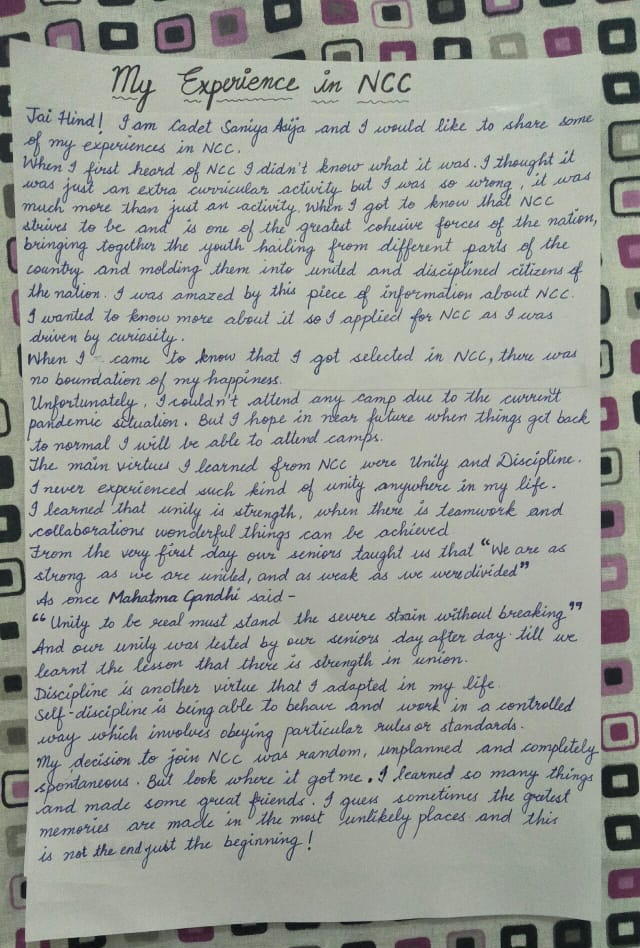 My Experience in NCC
Jai Hind! I am Cadet Saniya Asija and I would like to share some
of my experiences in NCC.
When I first heard of NCC I didn't know what it was. I thought it
was just an extra curricular activity but I was so wrong, it was
much more than just an activity. When I got to know that NCC
strives to be and is one of the greatest cohesive forces of the nation,
bringing together the youth hailing from different parts of the
country and molding them into united and disciplined citizens of
the nation. I was amazed by this piece of information about NCC.
I wanted to know more about it so I applied for NCC as I was
driven by curiosity.
When I came to know that I got selected in NCC, there was
no boundation of my happiness.
Unfortunately, I couldn't attend any camp due to the current
pandemic situation. But I hope in near future when things get back
to normal I will be able to attend camps.
The main virtues I learned from NCC were Unity and Discipline.
I never experienced such kind of unity anywhere in my life.
I learned that unity is strength, when there is teamwork and
collaborations wonderful things can be achieved
From the very first day our seniors taught us that "We are as
strong as we are united, and as weak as we were divided"
As once Mahatma Gandhi said -
"Unity to be real must stand the severe strain without breaking"
And our unity was tested by our seniors day after day till we
learnt the lesson that there is strength in union.
Discipline is another virtue that I adapted in my life.
Self-discipline is being able to behave and work in a controlled
way which involves obeying particular rules or standards.
My decision to join NCC was random, unplanned and completely
spontaneous. But look where it got me. I learned so many things
and made some great friends. I guess sometimes the gretest
memories are made in the most unlikely places and this
is not the end just the beginning!